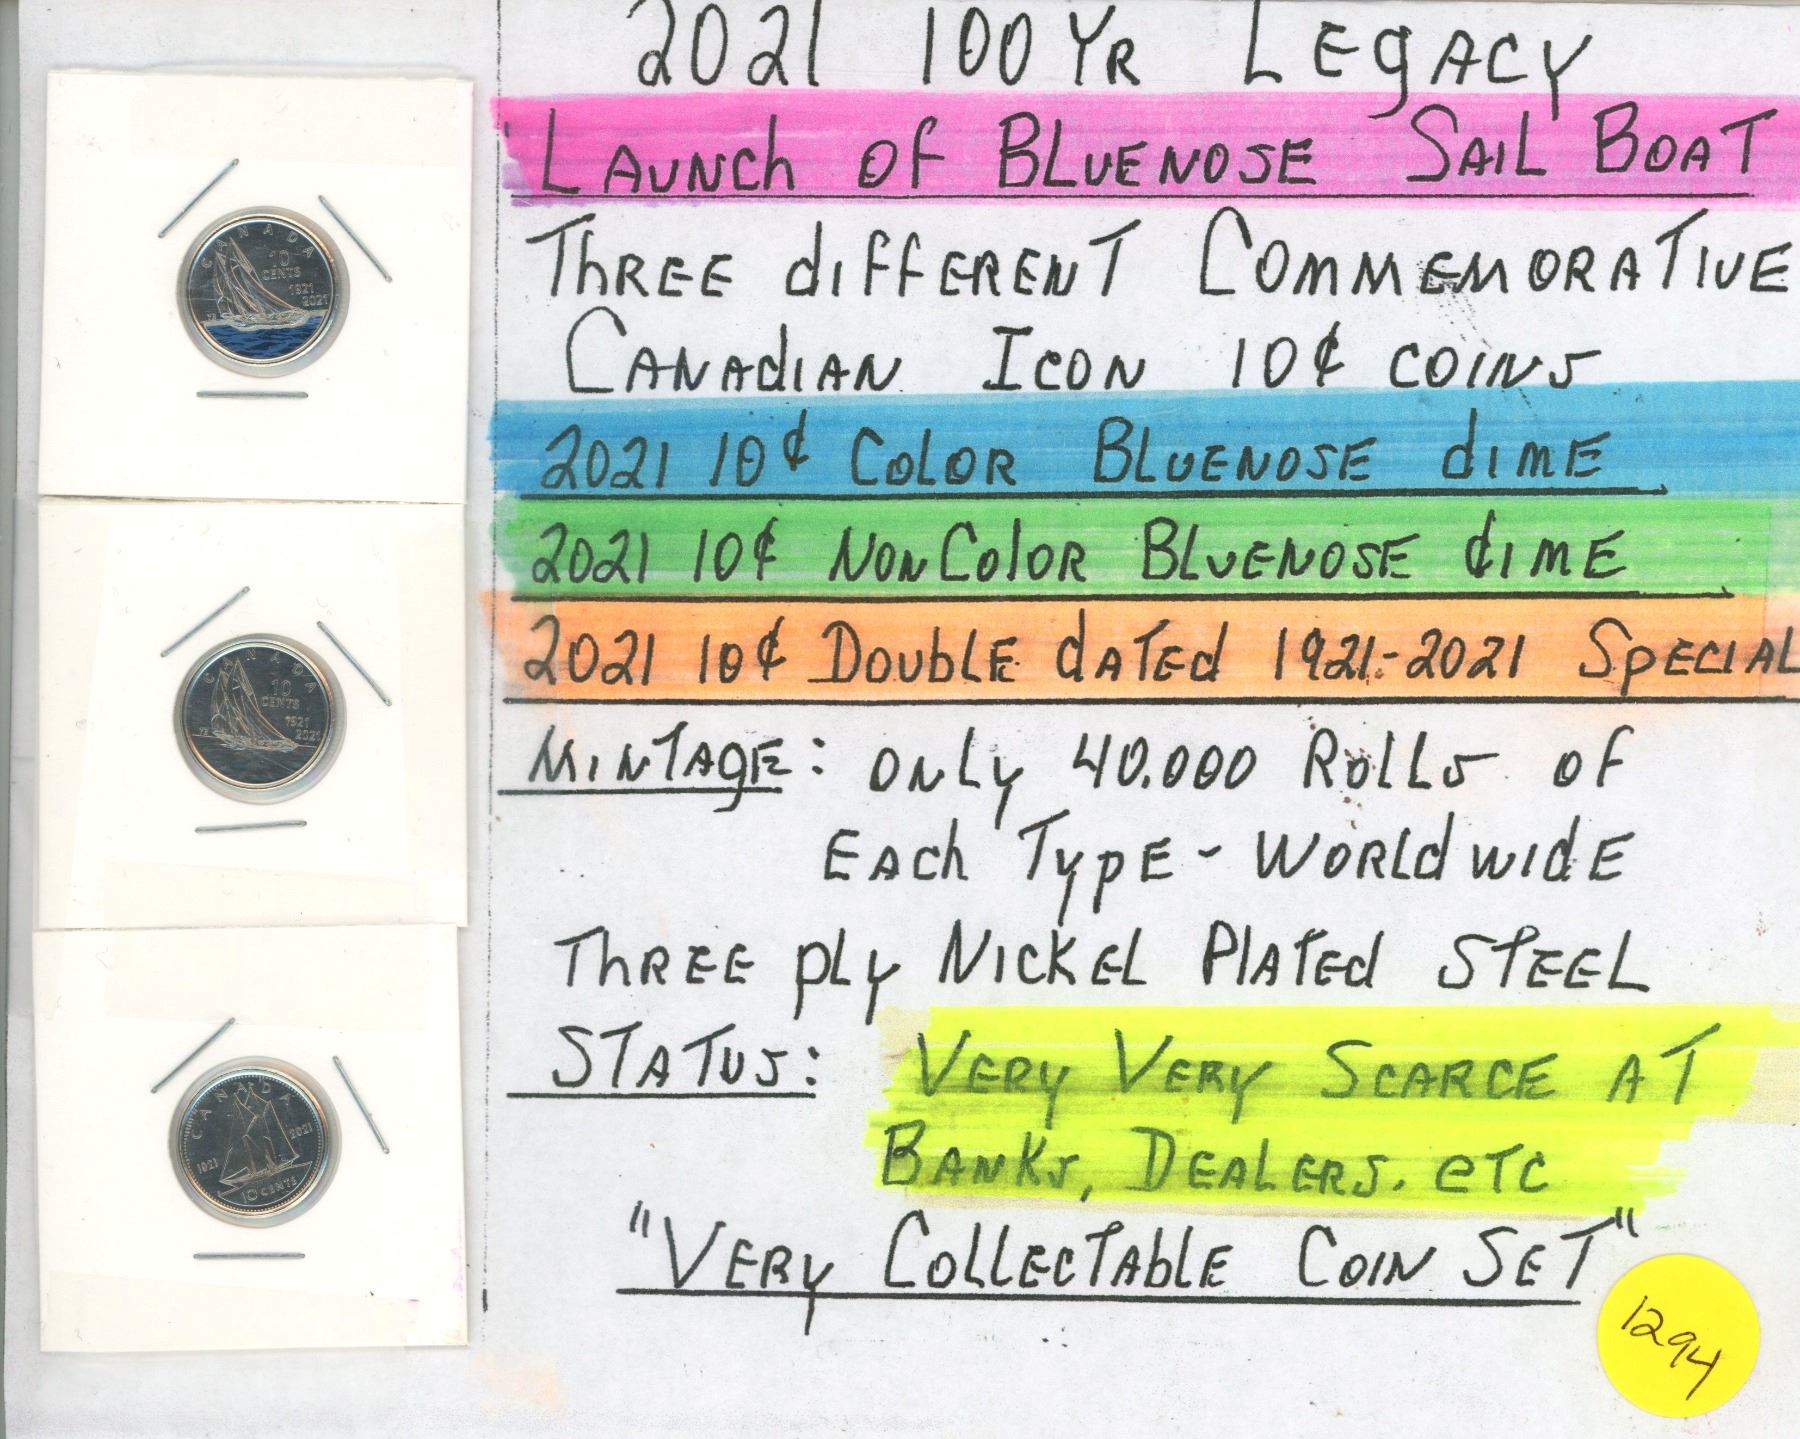 2021 100 YR LEGACY
LAUNCH OF BLUENOSE SAIL BOAT
THREE diffERENT COMMEMORATIVE
CANAdIAN ICON 10¢ COINS
2021 10¢ COLOR BLUENOSE dIME
2021 10¢ NONCOLOR BLUENOSE dIME
2021 10¢ DOUBLE dATEd 1921-2021 SPECIAL
MINTAGE: ONLY 40.000 ROLLS OF
EACh TYPE - WORLdWIdE
THREE PLY NICKEL PLATEd STEEL
STATUS: VERY VERY SCARCE AT
BANKS, DEALERS. eTC
"VERY COLLECTABLE COIN SET"
1294
CANADA
10
CENTS
1921
2021
CANADA
10
CENTS
1921
2021
CANADA
1921
2021
10 CENTS